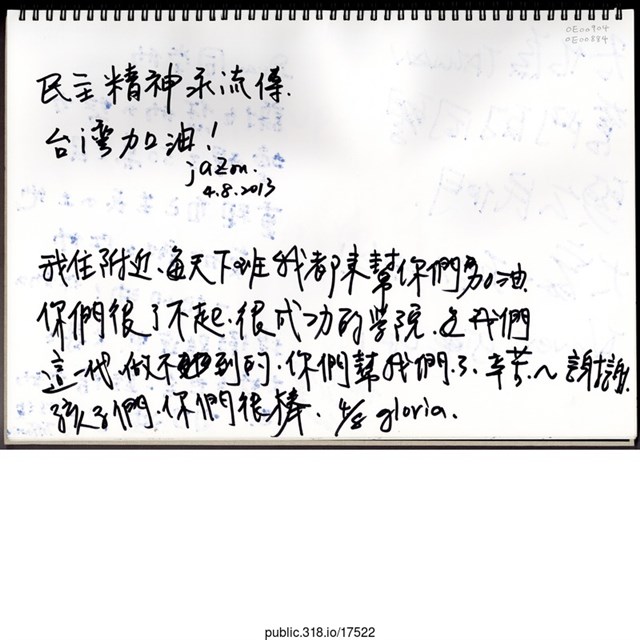 OE00904
OE00884
民主精神永流傳.
台灣加油!
jazon.
4.8.2013
我住附近、每天下班我都來幫你們加油.
你們很了不起.很成功的學院.是我們
這一代.做不到的.你們幫我們了.辛苦~謝謝.
孩子們.你們很棒. 4/8 gloria.
public.318.io/17522